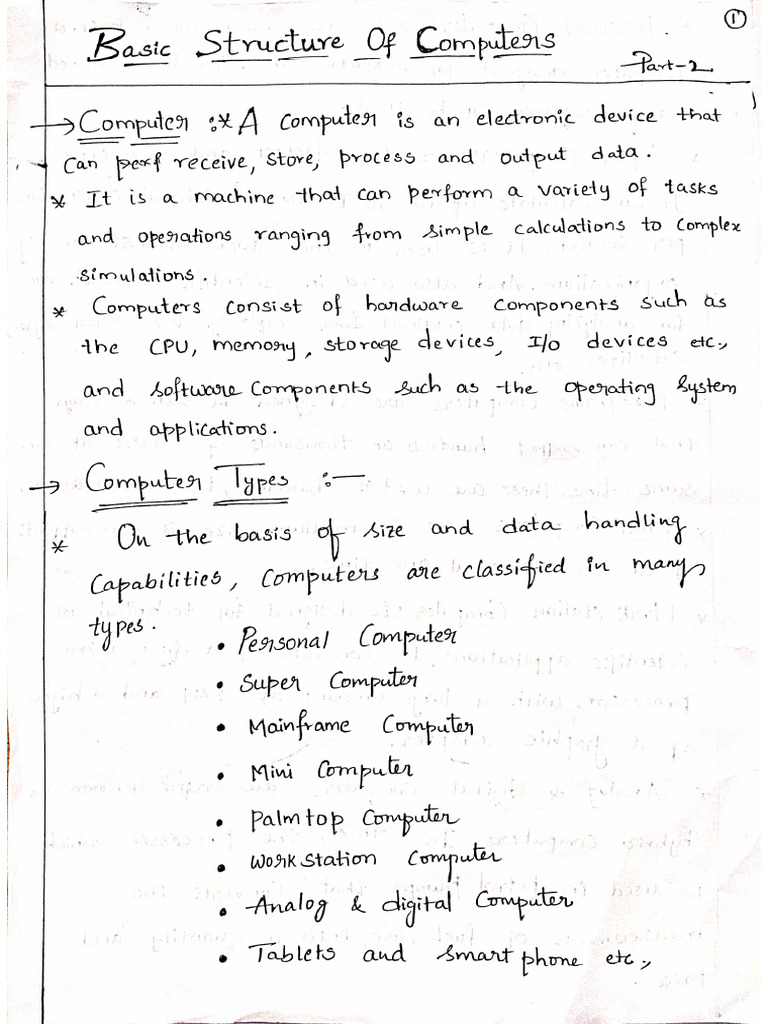 ①
Basic Structure Of Computers
Part-2
→ Computer :* A computer is an electronic device that
can perf receive, store, process and output data.
* It is a machine that can perform a variety of tasks
and operations ranging from simple calculations to complex
simulations.
* Computers consist of hardware components such as
the CPU, memory, storage devices, I/o devices etc.,
and software components such as the operating system
and applications.
→ Computer Types :-
* On the basis of size and data handling
capabilities, computers are classified in many
types.
• Personal Computer
• Super Computer
• Mainframe Computer
• Mini Computer
• Palmtop Computer
• Workstation Computer
• Analog & digital Computer
• Tablets and smart phone etc.,